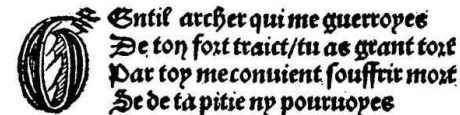 GEntil archer qui me guerroyes
De ton fort traict/tu as grant tort
Par toy me conuient souffrir mort
Se de ta pitie ny pouruoyes